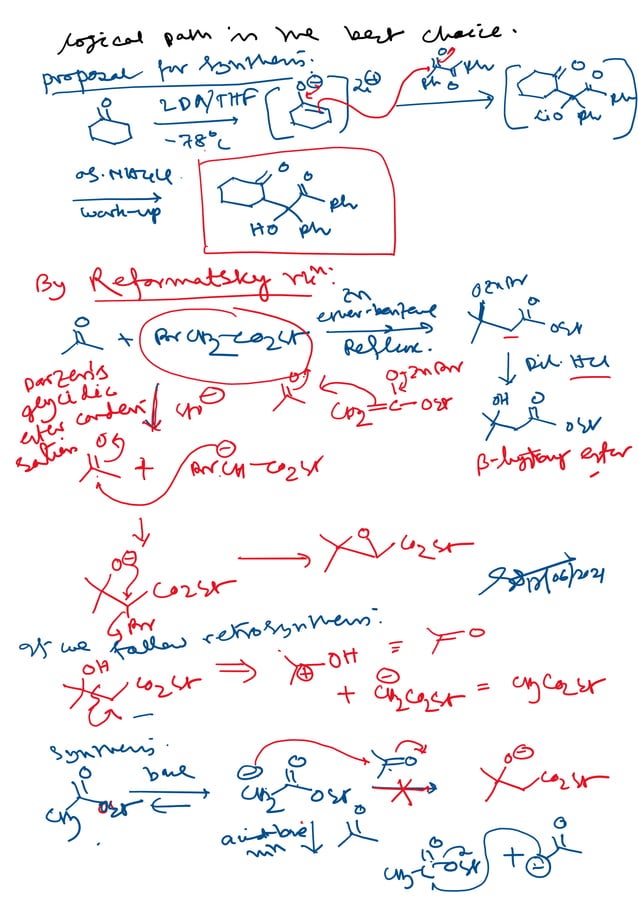 logical path is the best choice.
proposal for synthesis:
O
LDA/THF
-78°C
O⊖
Li⊕
Ph O Ph
O O
LiO Ph Ph
aq. NH4Cl
work-up
O O
Ph
HO Ph
By Reformatsky rxn:
O
+ BrCH2-CO2Et
Zn
ether-benzene
Reflux.
OZnBr O
OEt
Darzen's
glycidic
ester conden
sation
EtO⊖
O
OZnBr
CH2=C-OEt
Dil. HCl
OH O
OEt
β-hydroxy ester
O + Br.CH-CO2Et
⊖
O⊖
CO2Et
Br
O CO2Et
12/06/2021
If we follow retrosynthesis:
OH
CO2Et ⇒ ⊕ OH ≡ O
+ ⊖CH2CO2Et ≡ CH3CO2Et
Synthesis:
O
CH3 OEt
base
⊖ O
CH2 OEt
O
O⊖
CO2Et
acid-base
rxn
O
O
CH3-C-OEt + ⊖ O